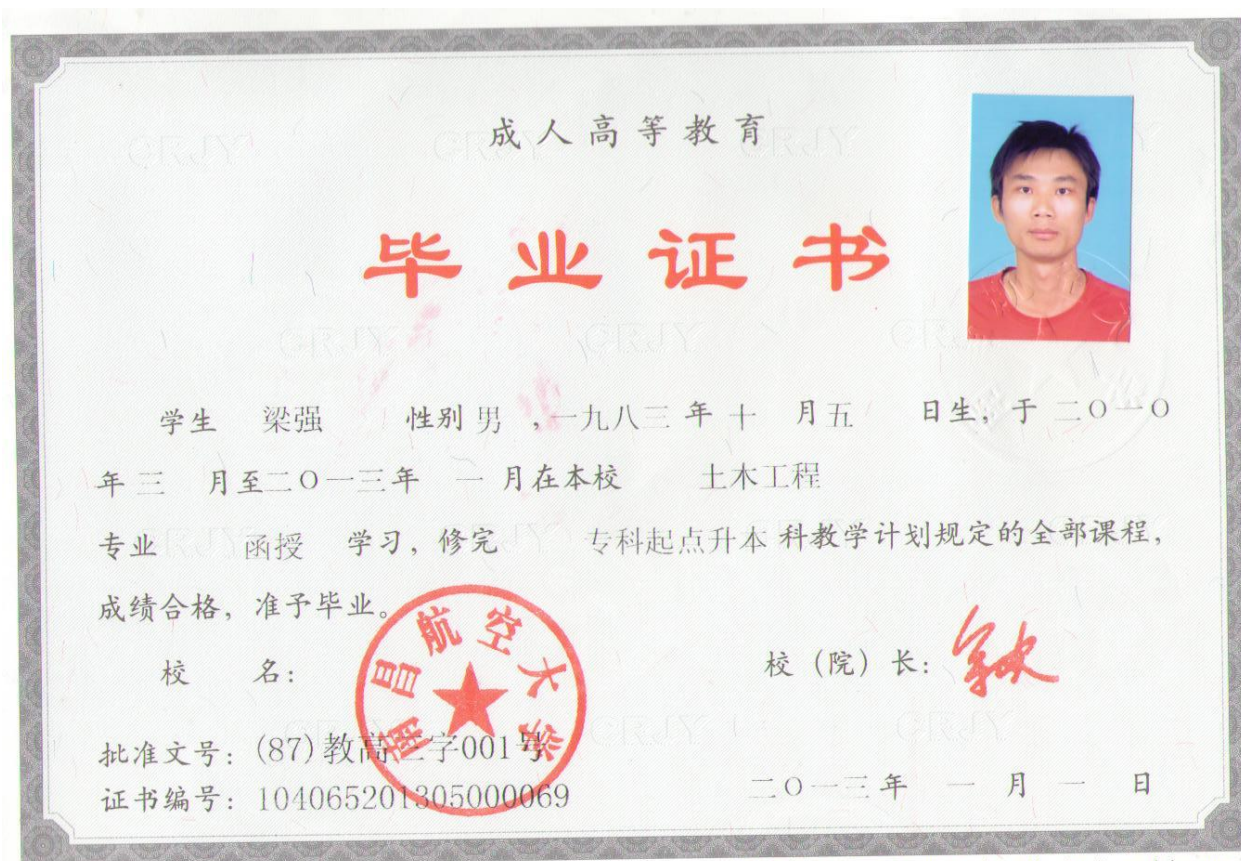 成人高等教育
毕业证书
学生 梁强 性别 男 ,一九八三 年 十 月 五 日生, 于 二〇一〇
年 三 月至二〇一三年 一 月在本校 土木工程
专业 函授 学习, 修完 专科起点升本 科教学计划规定的全部课程,
成绩合格, 准予毕业。
校 名:
南昌航空大学
校(院)长:
批准文号: (87)教高三字001号
证书编号: 104065201305000069
二〇一三年 一 月 一 日